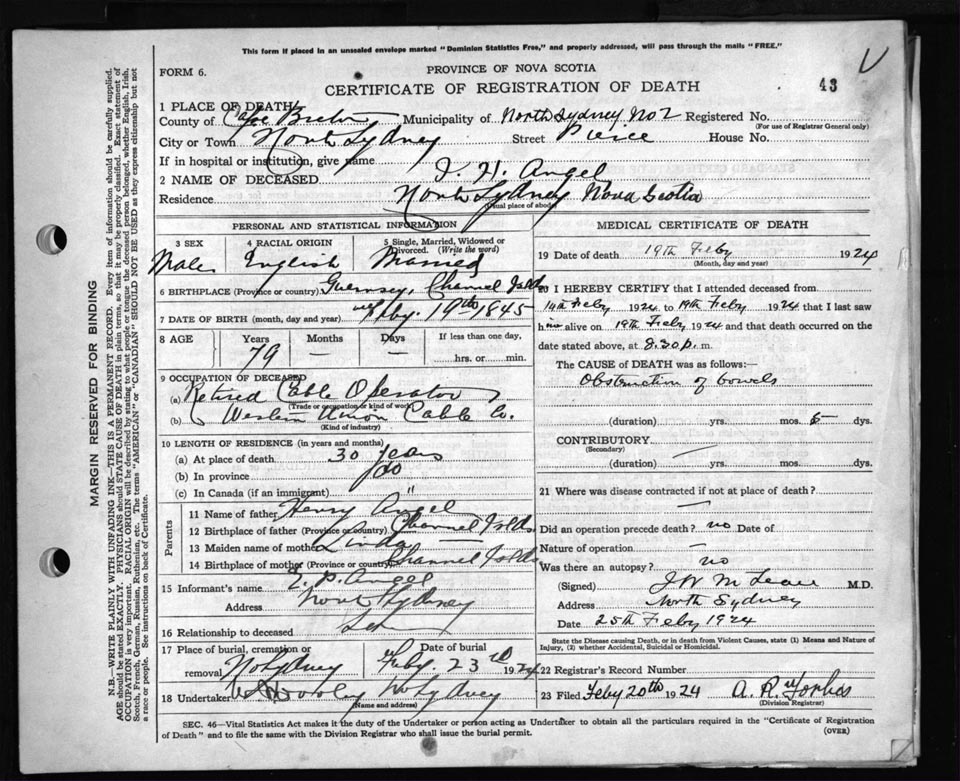 This form if placed in an unsealed envelope marked "Dominion Statistics Free," and properly addressed, will pass through the mails "FREE."
FORM 6.
PROVINCE OF NOVA SCOTIA
CERTIFICATE OF REGISTRATION OF DEATH
43
1 PLACE OF DEATH
County of Cape Breton Municipality of North Sydney No 2 Registered No.
(For use of Registrar General only)
City or Town North Sydney Street Pierce House No.
If in hospital or institution, give name
2 NAME OF DECEASED J. H. Angel
Residence North Sydney Nova Scotia
(Usual place of abode)
PERSONAL AND STATISTICAL INFORMATION
3 SEX 4 RACIAL ORIGIN 5 Single, Married, Widowed or Divorced. (Write the word)
Male English Married
6 BIRTHPLACE (Province or country) Guernsey, Channel Islds
7 DATE OF BIRTH (month, day and year) Feby. 19th 1845
8 AGE Years Months Days If less than one day,
79 — — hrs. or min.
9 OCCUPATION OF DECEASED
(a) Retired Cable Operator
(Trade or occupation or kind of work)
(b) Western Union Cable Co.
(Kind of industry)
10 LENGTH OF RESIDENCE (in years and months)
(a) At place of death 30 years
(b) In province do
(c) In Canada (if an immigrant) "
Parents
11 Name of father Henry Angel
12 Birthplace of father (Province or country) Channel Islds
13 Maiden name of mother
14 Birthplace of mother (Province or country) Channel Islds
15 Informant's name E. P. Angel
Address North Sydney
16 Relationship to deceased
17 Place of burial, cremation or removal No Sydney Date of burial Feby. 23rd 1924
18 Undertaker No Sydney
(Name and address)
MEDICAL CERTIFICATE OF DEATH
19 Date of death 19th Feby 1924
(Month, day and year)
20 I HEREBY CERTIFY that I attended deceased from
14th Feby 1924 to 19th Feby 1924 that I last saw
him alive on 19th Feby 1924 and that death occurred on
date stated above, at 8.30 p. m.
The CAUSE OF DEATH was as follows:
Obstruction of bowels
(duration) yrs. mos. 5 dys.
CONTRIBUTORY —
(Secondary)
(duration) yrs. mos. dys.
21 Where was disease contracted if not at place of death? —
Did an operation precede death? no Date of
Nature of operation —
Was there an autopsy? no
(Signed) M.D.
Address North Sydney
Date 25th Feby 1924
State the Disease causing Death, or in death from Violent Causes, state (1) Means and Nature of Injury, (2) whether Accidental, Suicidal or Homicidal.
22 Registrar's Record Number
23 Filed Feby 20th 1924 A. R. Forbes
(Division Registrar)
SEC. 46—Vital Statistics Act makes it the duty of the Undertaker or person acting as Undertaker to obtain all the particulars required in the "Certificate of Registration of Death" and to file the same with the Division Registrar who shall issue the burial permit.
(OVER)
MARGIN RESERVED FOR BINDING
N.B.—WRITE PLAINLY WITH UNFADING INK—THIS IS A PERMANENT RECORD. Every item of information should be carefully supplied.
AGE should be stated EXACTLY. PHYSICIANS should STATE CAUSE OF DEATH in plain terms, so that it may be properly classified. Exact statement of
OCCUPATION is very important. RACIAL ORIGIN will be described by stating to what people or tongue the deceased person belonged, whether English, Irish,
Scotch, French, German, Russian, Ruthenian, etc. The terms "AMERICAN" or "CANADIAN" SHOULD NOT BE USED as they express citizenship but not
a race or people. See instructions on back of Certificate.